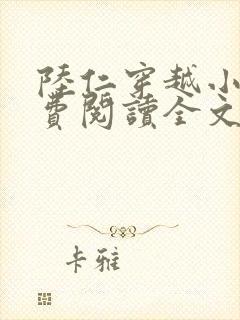 陸仁穿越小
費閱讀全文
卡雅